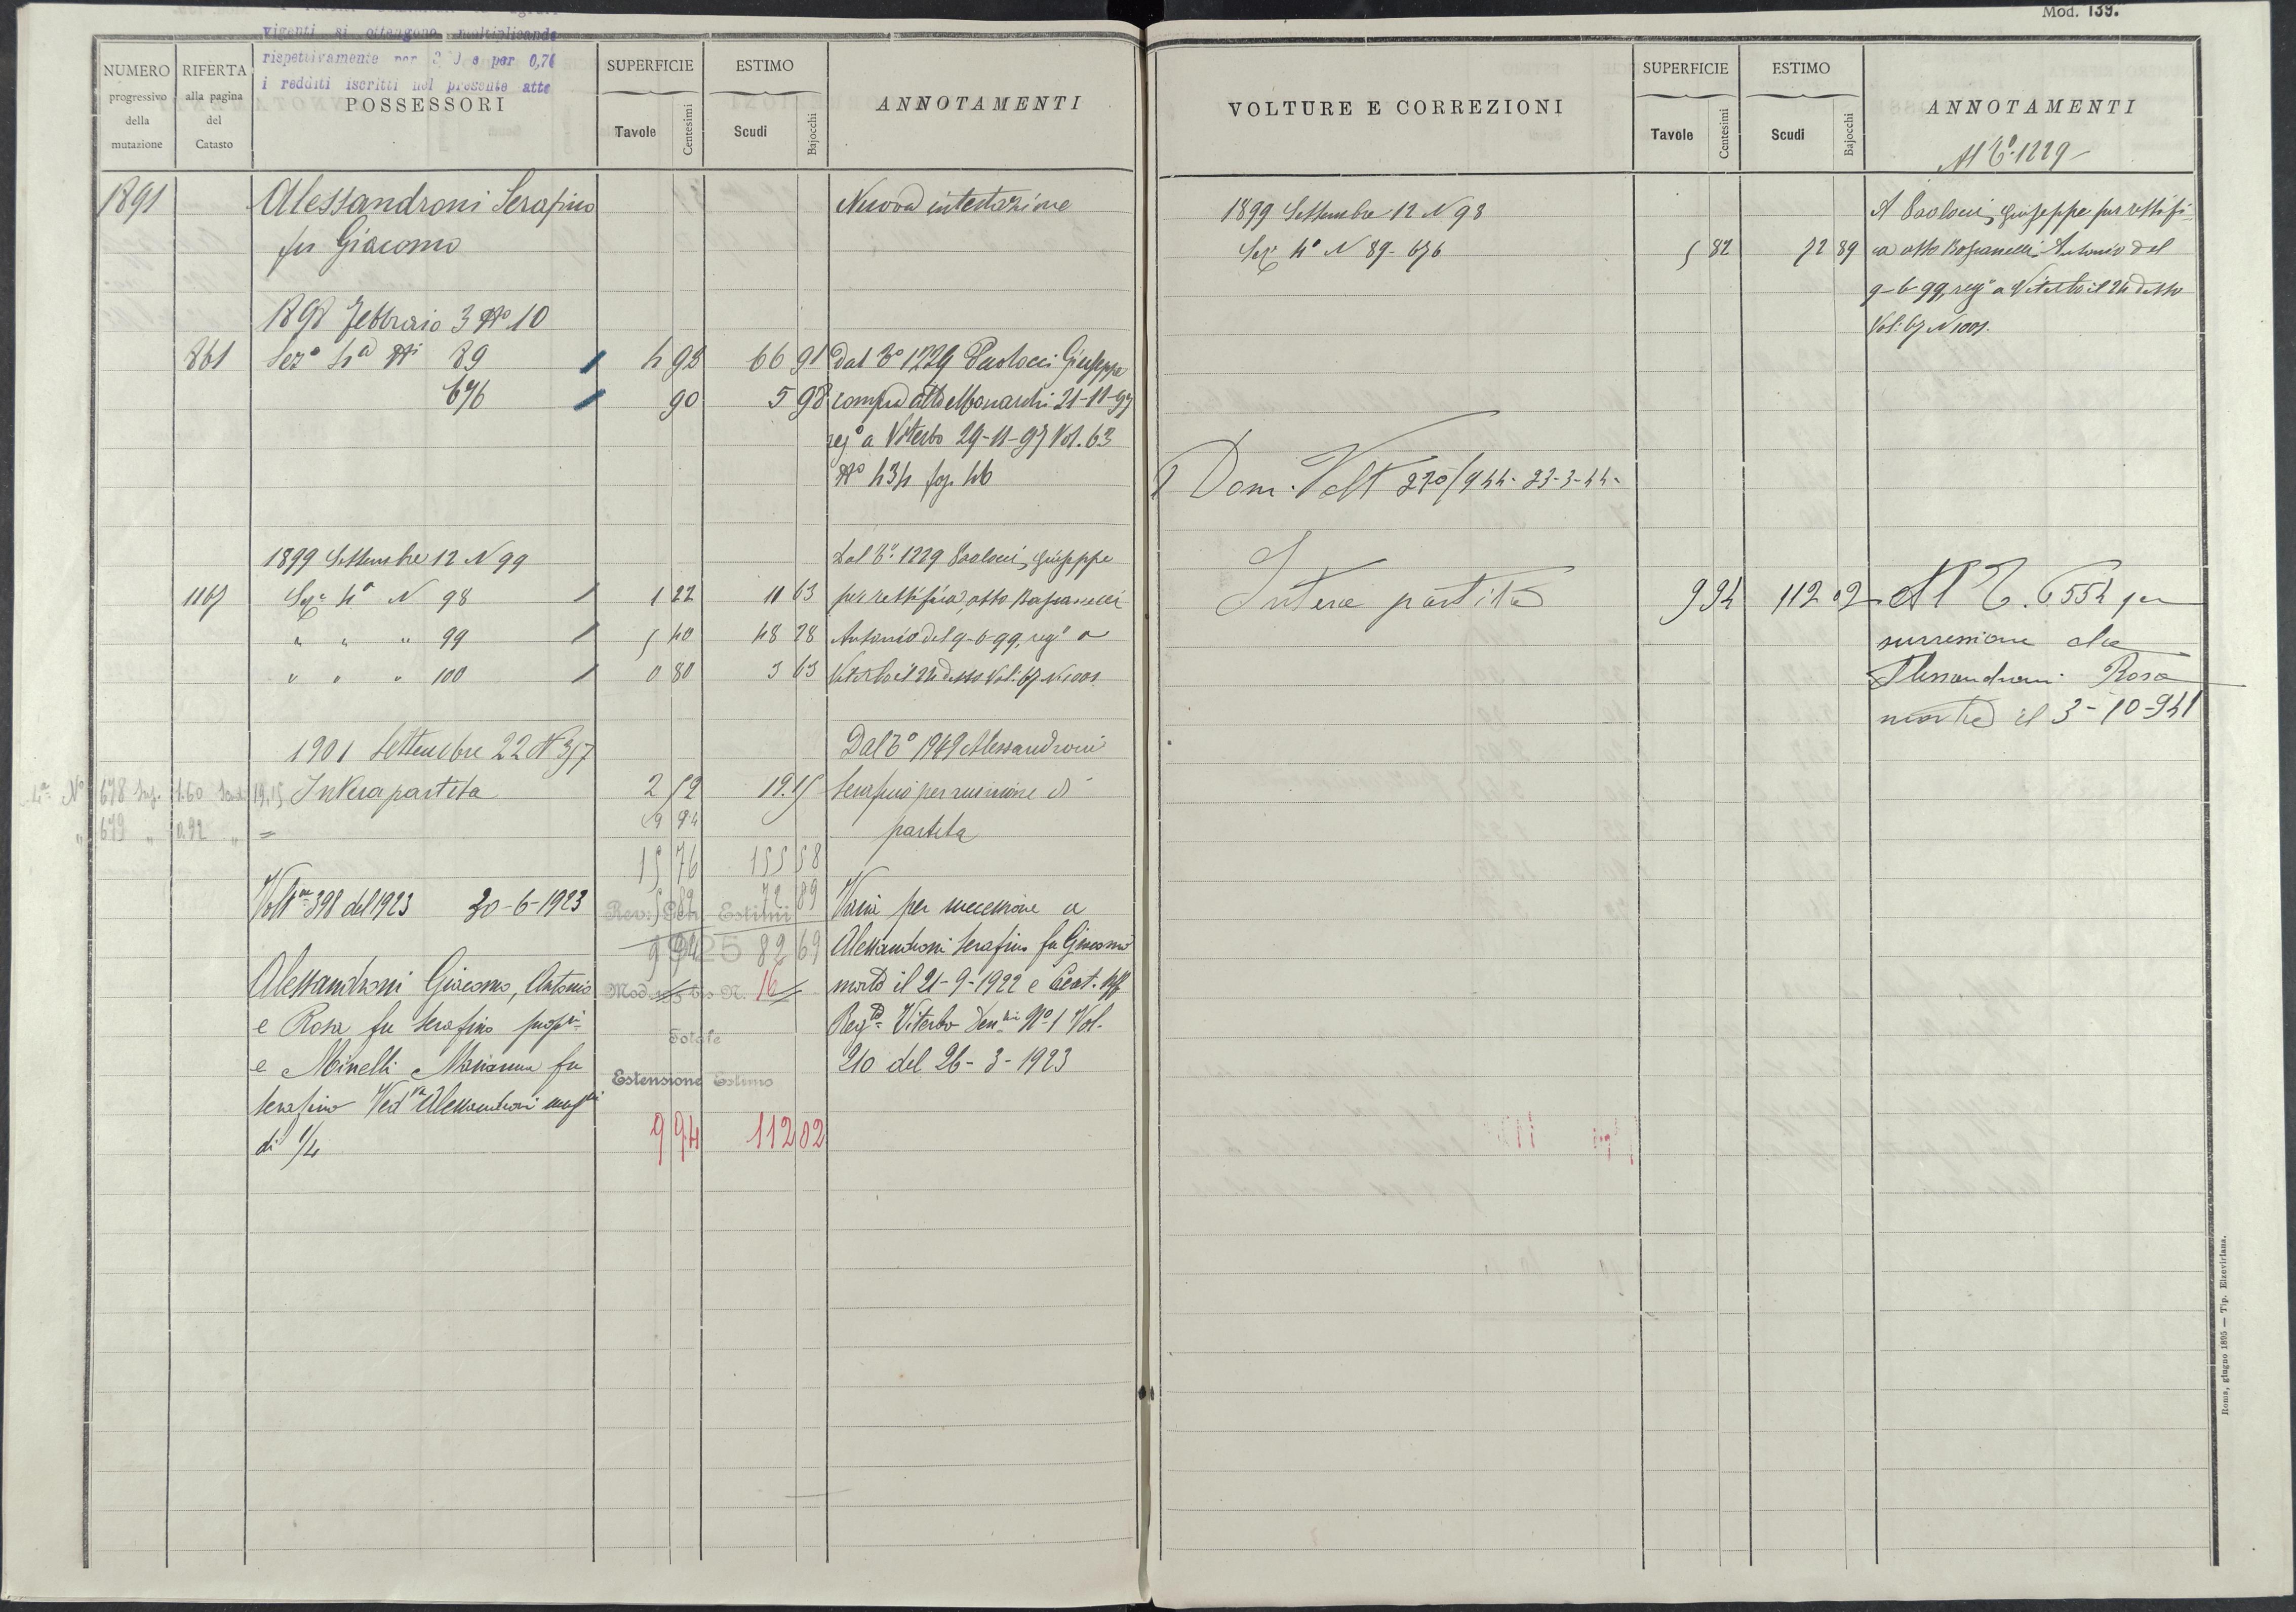 Mod. 139.
vigenti si ottengono moltiplicando
rispettivamente per e per 0,70
i redditi iscritti nel presente atto
NUMERO progressivo della mutazione
RIFERTA alla pagina del Catasto
POSSESSORI
SUPERFICIE
Tavole Centesimi
ESTIMO
Scudi Bajocchi
ANNOTAMENTI
1891 Alessandroni Serafino Nuova intestazione
fu Giacomo
1898 Febbraio 3 No 10
861 Seza 4a Ni 89 4 92 66 91 Dal To 1229 Paolocci Giuseppe
676 90 5 98 compra atto Monarchi 21-11-97
rego a Viterbo 29-11-97 Vol. 63
No 434 fog. 46
1899 Settembre 12 N 99 Dal To 1229 Paolocci Giuseppe
1167 Seza 4a N 98 1 22 11 63 per rettifica atto
" " " 99 5 40 48 28 Antonio del 9-6-99, rego a
" " " 100 0 80 3 63 Viterbo il 24 detto Vol. 67 N 1001
1901 Settembre 22 N 357 Dal To 1949 Alessandroni
4a No 678 Sup. 1.60 19,15 Intera partita 2 52 19.15 Serafino per riunione di
" 679 " 0.92 " = partita
15 76 155 58
Volta 398 del 1923 30-6-1923 5 82 72 89 Varia per successione a
Rev. Gen. Estimi
9 94 82 69 Alessandroni Serafino fu Giacomo
1925
Alessandroni Giacomo, Antonio Mod. N. 16 morto il 21-9-1922 e
e Rosa fu Serafino propri Rego Viterbo No 1 Vol.
Totale
e Minelli Marianna fu 210 del 26-3-1923
Estensione Estimo
Serafino Ved Alessandroni
di 1/4 9 94 112 02
VOLTURE E CORREZIONI
SUPERFICIE
Tavole Centesimi
ESTIMO
Scudi Bajocchi
ANNOTAMENTI
Al To 1229
1899 Settembre 12 N 98 A Paolocci Giuseppe per rettifi
Seza 4a N 89-676 5 82 72 89 ca atto Antonio del
9-6-99, rego a Viterbo il 24 detto
Vol. 67 N 1001.
Dom. Volt 220/944- 23-3-44-
Intera partita 9 94 112 02 Al T. 6554 per
successione a
Alessandroni Rosa
morta il 3-10-941
Roma, giugno 1895 — Tip. Elzeviriana.